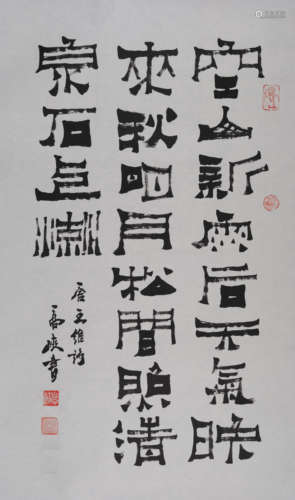 空山新雨后天氣晚
來秋明月松間照清
泉石上流
唐王維詩